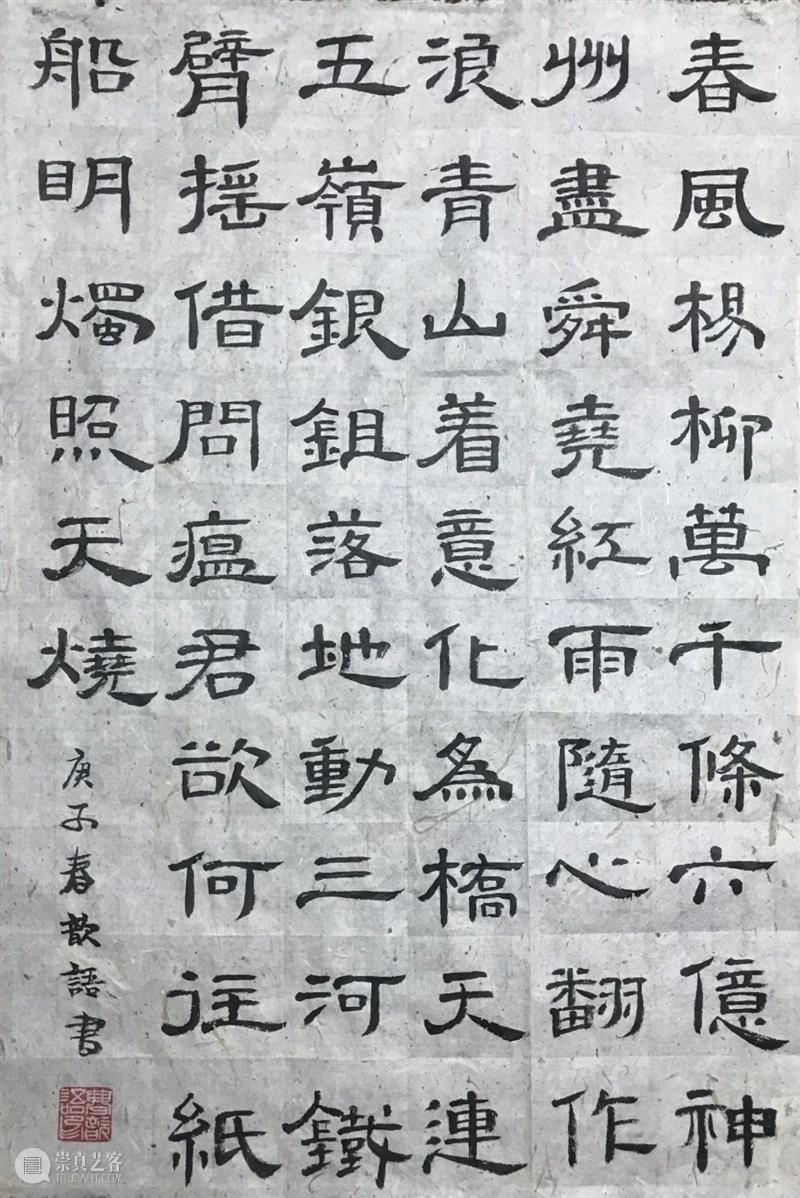 春風楊柳萬千條六億神
州盡舜堯紅雨隨心翻作
浪青山着意化為橋天連
五嶺銀鉏落地動三河鐵
臂搖借問瘟君欲何往紙
船明燭照天燒
庚子春歆語书
崇真艺客